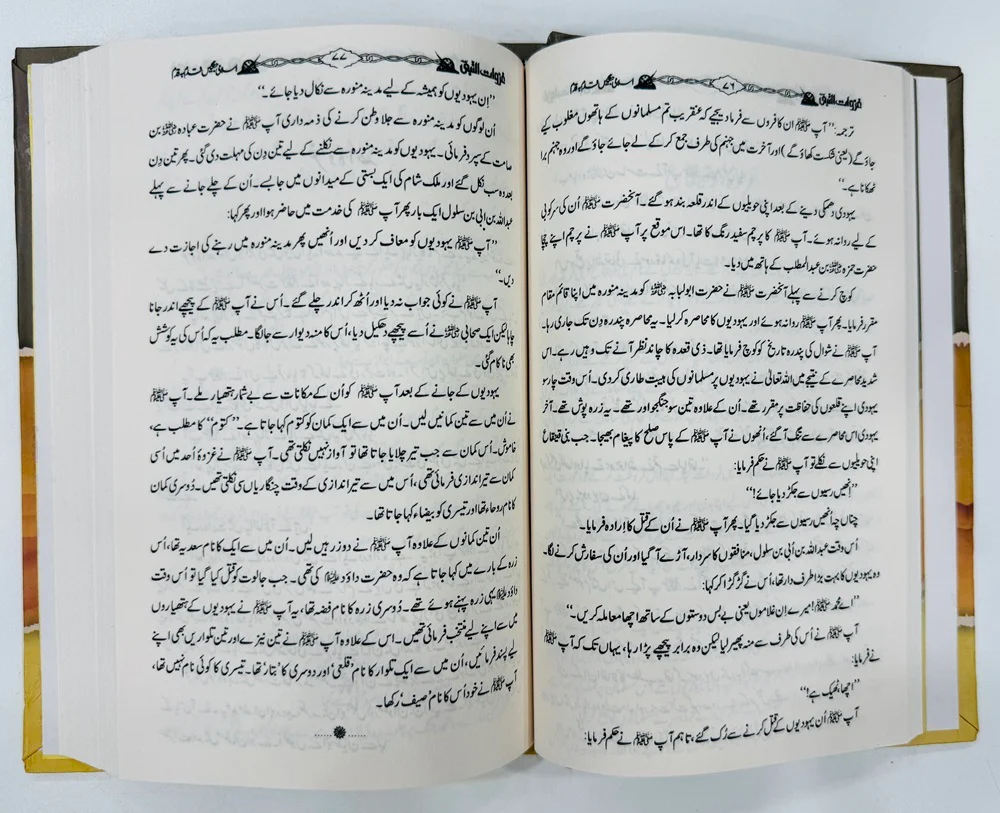 غزوات النبی ﷺ
۷۶
اسلامی جنگیں قدم بہ قدم
ترجمہ: ”آپ ﷺ ان کافروں سے فرما دیجیے کہ عنقریب تم مسلمانوں کے ہاتھوں مغلوب کیے
جاؤ گے (یعنی شکست کھاؤ گے) اور آخرت میں جہنم کی طرف جمع کر کے لے جائے جاؤ گے اور وہ جہنم برا
ٹھکانا ہے۔“
یہودی دھمکی دینے کے بعد اپنی حویلیوں کے اندر قلعہ بند ہو گئے۔ آنحضرت ﷺ اُن کی سرکوبی
کے لیے روانہ ہوئے۔ آپ ﷺ کا پرچم سفید رنگ کا تھا۔ اس موقع پر آپ ﷺ نے پرچم اپنے چچا
حضرت حمزہ ؓ بن عبدالمطلب کے ہاتھ میں دیا۔
کوچ کرنے سے پہلے آنحضرت ﷺ نے حضرت ابولبابہ ؓ کو مدینہ منورہ میں اپنا قائم مقام
مقرر فرمایا۔ پھر آپ ﷺ روانہ ہوئے اور یہودیوں کا محاصرہ کر لیا۔ یہ محاصرہ پندرہ دِن تک جاری رہا۔
آپ ﷺ نے شوال کی پندرہ تاریخ کو کوچ فرمایا تھا۔ ذی قعدہ کا چاند نظر آنے تک وہیں رہے۔ اس
شدید محاصرے کے نتیجے میں اللہ تعالیٰ نے یہودیوں پر مسلمانوں کی ہیبت طاری کر دی۔ اس وقت چار سو
یہودی اپنے قلعوں کی حفاظت پر مقرر تھے۔ اُن کے علاوہ تین سو جنگجو اور تھے۔ یہ زرہ پوش تھے۔ آخر
یہودی اس محاصرے سے تنگ آ گئے، اُنھوں نے آپ ﷺ کے پاس صلح کا پیغام بھیجا۔ جب بنی قینقاع
اپنی حویلیوں سے نکلے تو آپ ﷺ نے حکم فرمایا:
”اِنھیں رسیوں سے جکڑ دیا جائے!“
چناں چہ اُنھیں رسیوں سے جکڑ دیا گیا۔ پھر آپ ﷺ نے اُن کے قتل کا اِرادہ فرمایا۔
اُس وقت عبداللہ بن اُبی بن سلول، منافقوں کا سردار، آڑے آ گیا اور اُن کی سفارش کرنے لگا۔
وہ یہودیوں کا بہت بڑا طرف دار تھا، اُس نے گڑگڑا کر کہا:
”اے محمد ﷺ! میرے اِن غلاموں یعنی بے بس دوستوں کے ساتھ اچھا معاملہ کریں۔“
آپ ﷺ نے اُس کی طرف سے منہ پھیر لیا لیکن وہ برابر پیچھے پڑا رہا، یہاں تک کہ آپ ﷺ
نے فرمایا:
”اچھا ٹھیک ہے!“
آپ ﷺ اُن یہودیوں کے قتل کرنے سے رُک گئے، تاہم آپ ﷺ نے حکم فرمایا:
غزوات النبی ﷺ
۷۷
اسلامی جنگیں قدم بہ قدم
”اِن یہودیوں کو ہمیشہ کے لیے مدینہ منورہ سے نکال دیا جائے۔“
اُن لوگوں کو مدینہ منورہ سے جلا وطن کرنے کی ذمہ داری آپ ﷺ نے حضرت عبادہ ؓ بن
صامت کے سپرد فرمائی۔ یہودیوں کو مدینہ منورہ سے نکلنے کے لیے تین دِن کی مہلت دی گئی۔ پھر تین دن
بعد وہ سب نکل گئے اور ملک شام کی ایک بستی کے میدانوں میں جا بسے۔ اُن کے چلے جانے سے پہلے
عبداللہ بن ابی بن سلول ایک بار پھر آپ ﷺ کی خدمت میں حاضر ہوا اور پھر کہا:
”آپ ﷺ یہودیوں کو معاف کر دیں اور اُنھیں پھر مدینہ منورہ میں رہنے کی اجازت دے
دیں۔“
آپ ﷺ نے کوئی جواب نہ دیا اور اُٹھ کر اندر چلے گئے۔ اُس نے آپ ﷺ کے پیچھے اندر جانا
چاہا لیکن ایک صحابی ؓ نے اُسے پیچھے دھکیل دیا، اُس کا منہ دیوار سے جا لگا۔ مطلب یہ کہ اُس کی یہ کوشش
بھی ناکام گئی۔
یہودیوں کے جانے کے بعد آپ ﷺ کو اُن کے مکانات سے بے شمار ہتھیار ملے۔ آپ ﷺ
نے اُن میں سے تین کمانیں لیں۔ اُن میں سے ایک کمان کو کتوم کہا جاتا ہے۔ ”کتوم“ کا مطلب ہے،
خاموش۔ اُس کمان سے جب تیر چلایا جاتا تھا تو آواز نہیں نکلتی تھی۔ آپ ﷺ نے غزوۂ اُحد میں اُسی
کمان سے تیر اندازی فرمائی تھی، اُس میں سے تیر اندازی کے وقت چنگاریاں سی نکلتی تھیں۔ دُوسری کمان
کا نام روحاء تھا اور تیسری کو بیضاء کہا جاتا تھا۔
اُن تین کمانوں کے علاوہ آپ ﷺ نے دو زرہیں لیں۔ اُن میں سے ایک کا نام سعدیہ تھا، اُس
زرہ کے بارے میں کہا جاتا ہے کہ وہ حضرت داؤد علیہ السلام کی تھی۔ جب جالوت کو قتل کیا گیا تو اُس وقت
داؤد علیہ السلام یہی زرہ پہنے ہوئے تھے۔ دُوسری زرہ کا نام فضہ تھا، یہ آپ ﷺ نے یہودیوں کے ہتھیاروں
میں سے اپنے لیے منتخب فرمائی تھیں۔ اس کے علاوہ آپ ﷺ نے تین نیزے اور تین تلواریں بھی اپنے
لیے پسند فرمائیں، اُن میں سے ایک تلوار کا نام ’قلعی‘ اور دوسری کا ’بتار‘ تھا۔ تیسری کا کوئی نام نہیں تھا،
آپ ﷺ نے خود اُس کا نام ’صیف‘ رکھا۔